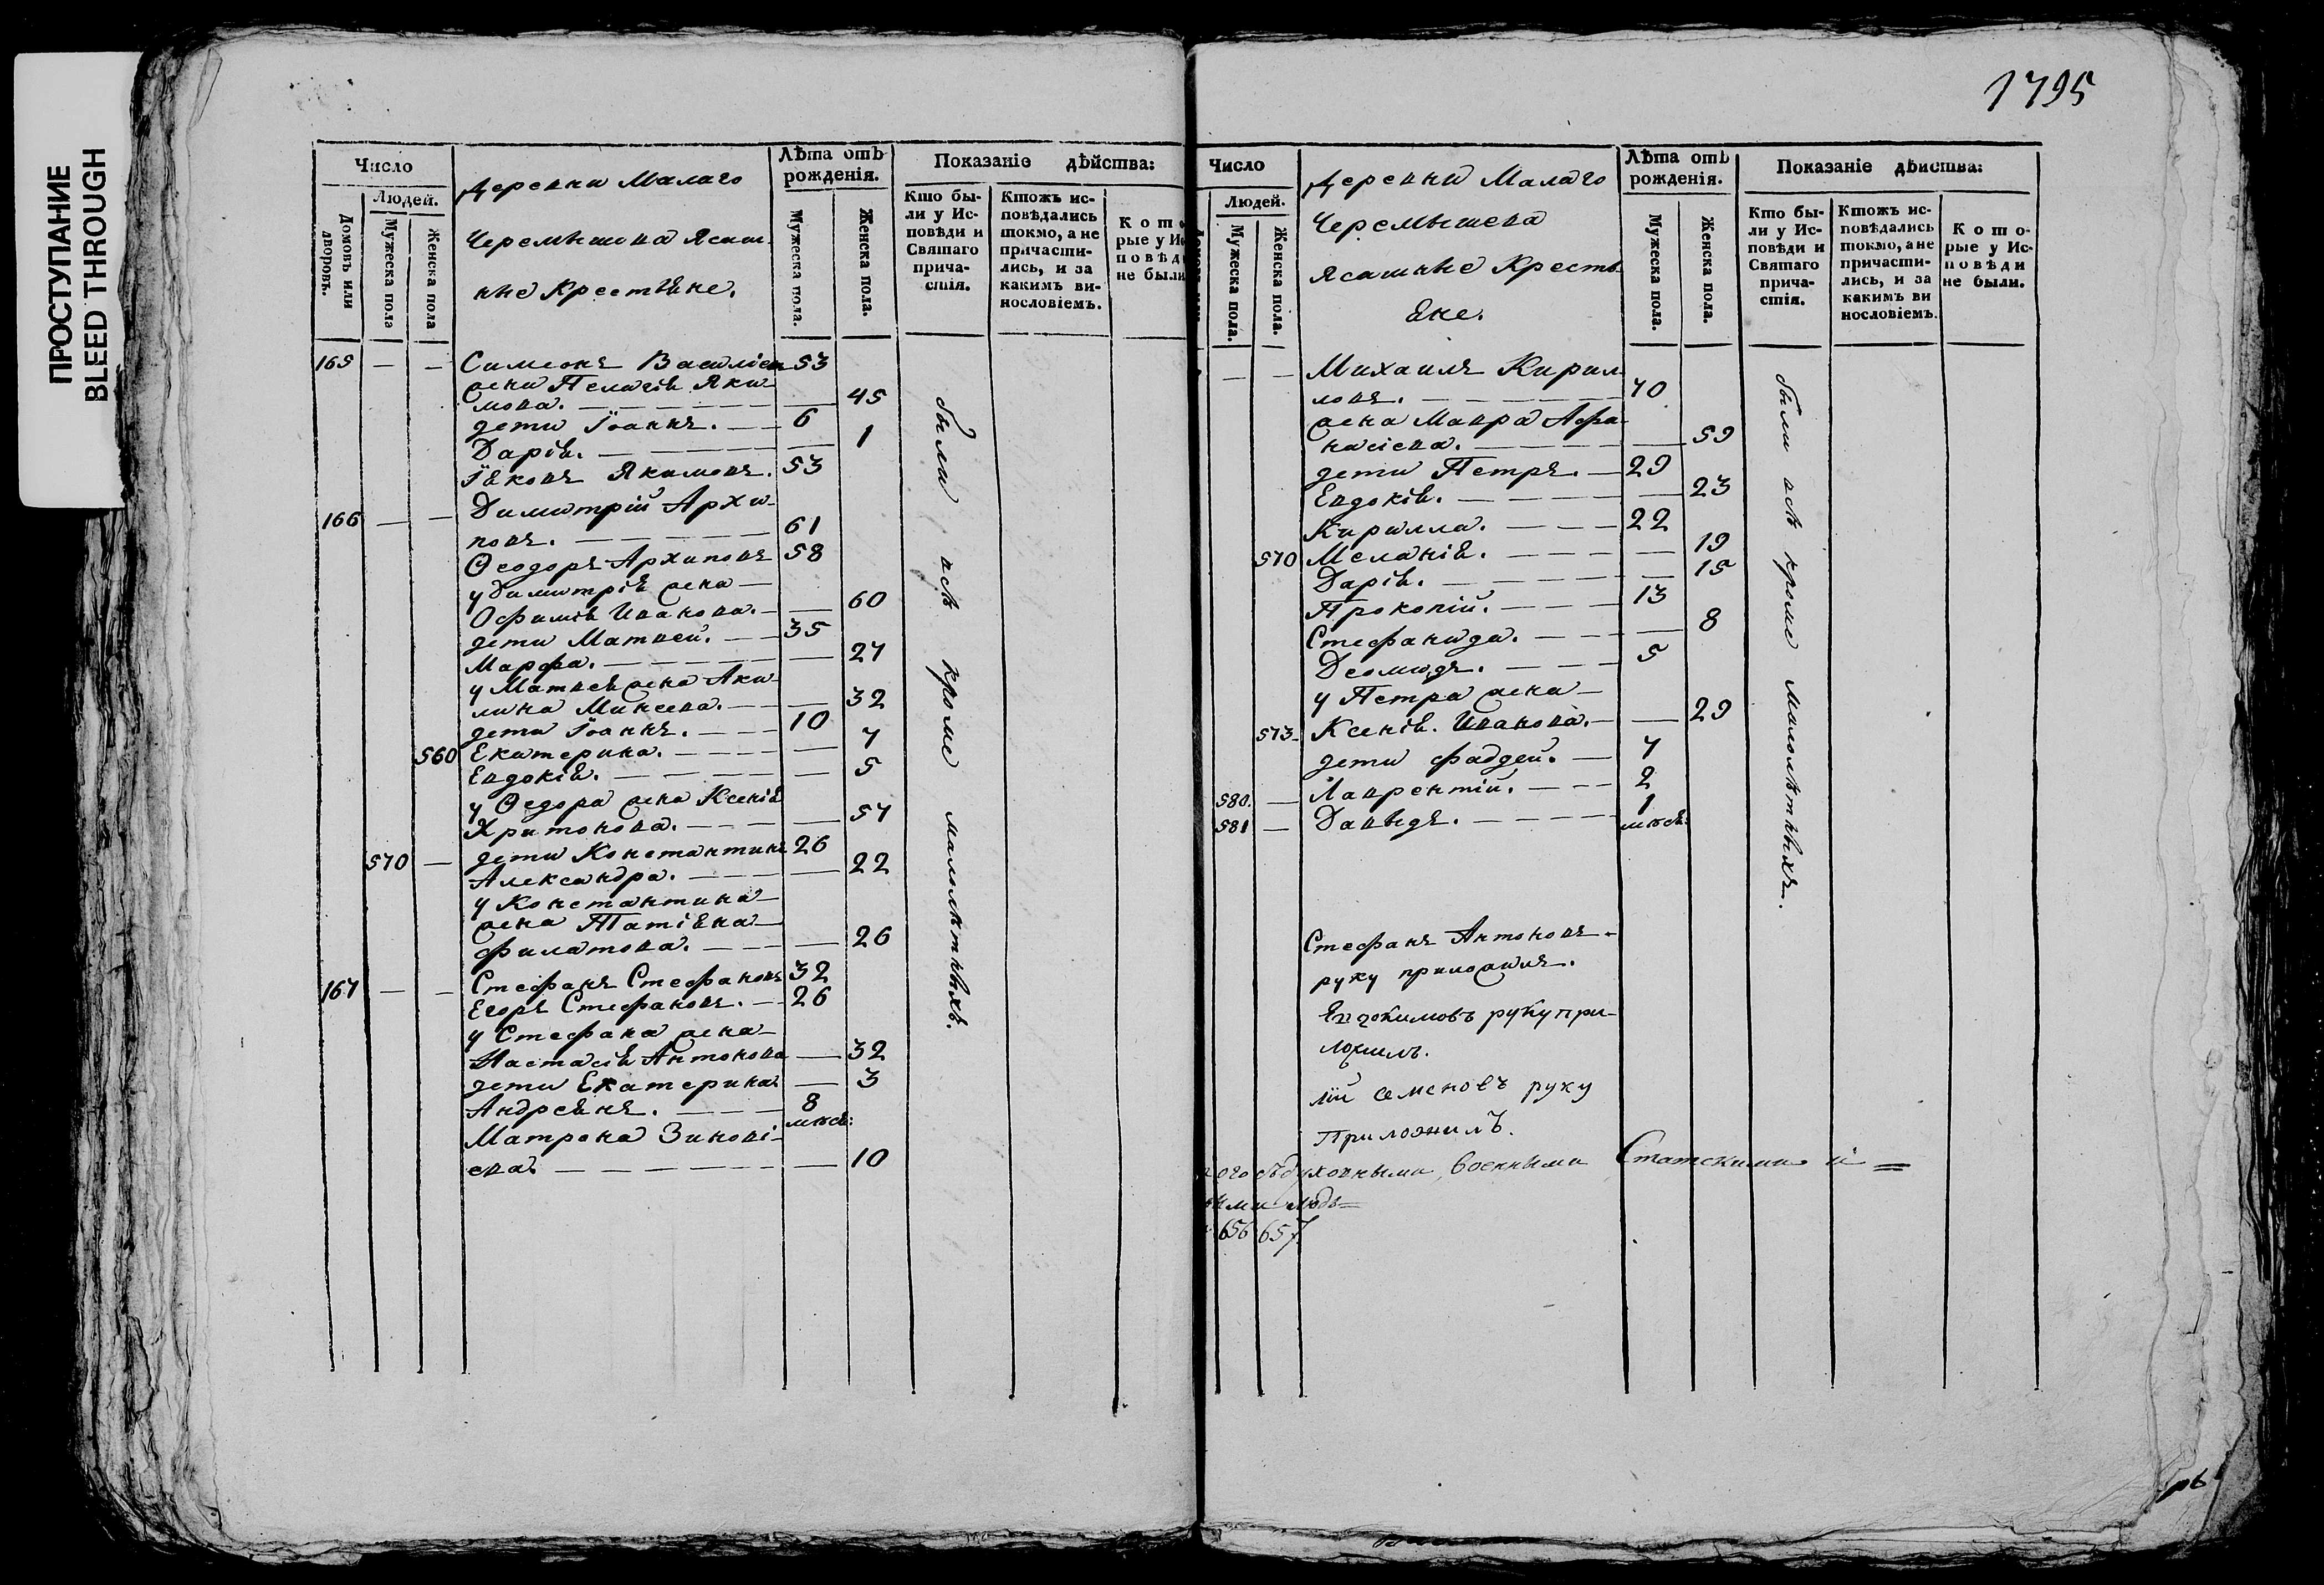 ПРОСТУПАНИЕ
BLEED THROUGH
1795
Число
Людей.
Домовъ или дворовъ.
Мужеска пола
Женска пола
Деревни Малаго
Черемышева Ясаш-
ные Крестьяне.
Лѣта отъ
рожденія.
Мужеска пола.
Женска пола.
Показаніе дѣйства:
Кто бы-
ли у Ис-
повѣди и
Святаго
прича-
стія.
Ктожъ ис-
повѣдались
токмо, а не
причасти-
лись, и за
какимъ ви-
нословіемъ.
Кото
рые у И
повѣд
не были
165 — — Симеонъ Василіевъ 53
жена Пелагія Яки-
мова. — 45
дети Іоаннъ. — 6
Дарія. — 1
Іяковъ Якимовъ. 53
166 — — Димитрій Архи-
повъ. — 61
Ѳеодоръ Архиповъ 58
у Димитрія жена —
Офимія Иванова. — 60
дети Матвей. — 35
Марфа. — 27
у Матвея жена Аку-
лина Минеева. — 32
дети Іоаннъ. — 10
560 Екатерина. — 7
Евдокія. — 5
у Ѳедора жена Ксенія
Харитонова. — 57
570 — дети Константинъ 26
Александра. — 22
у Константина
жена Татіяна
Филатова. — 26
167 — — Стефанъ Стефановъ 32
Егоръ Стефановъ. — 26
у Стефана жена
Настасія Антонова — 32
дети Екатерина — 3
Андреянъ. — 8
мѣся:
Матрона Зинові-
ева. — 10
были всѣ кроме малолѣтныхъ.
Число
Людей.
Мужеска пола
Женска пола.
Деревни Малаго
Черемышева
Ясашные Кресть-
яне.
Лѣта отъ
рожденія.
Мужеска пола.
Женска пола.
Показаніе дѣйства:
Кто бы-
ли у Ис-
повѣди и
Святаго
прича-
стія.
Ктожъ ис-
повѣдались
токмо, а не
причасти-
лись, и за
какимъ ви
нословіемъ.
Кото-
рые у Ис-
повѣди
не были.
— — Михаилъ Кирил-
ловъ. — 70
жена Мавра Афа-
насіева. — 59
дети Петръ. — 29
Евдокія. — 23
Кирилла. — 22
570 Меланія. — 19
Дарія. — 15
Прокопій. — 13
Стефанида. — 8
Деомидъ. — 5
у Петра жена —
573 Ксенія Иванова. — 29
дети Фаддей. — 7
580. — Лаврентій. — 2
581 — Давыдъ. — 1
мѣся:
были всѣ кроме малолѣтныхъ.
Стефанъ Антоновъ
руку приложилъ.
Евдокимовъ руку при-
ложилъ.
лій Семеновъ руку
Приложилъ.
ого съ духовными, военными Статскими и =
ыми людь=
656 657